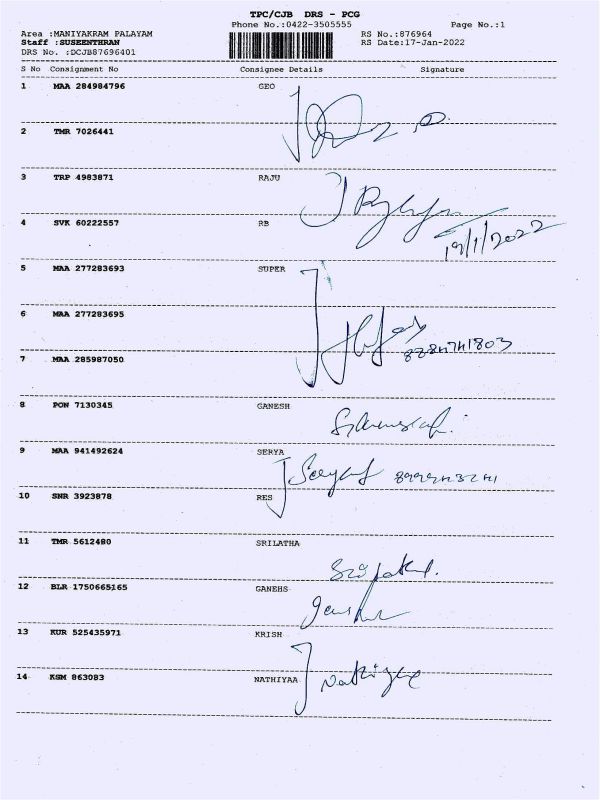 TPC/CJB DRS - PCG
Phone No.:0422-3505555 Page No.:1
Area :MANIYAKRAM PALAYAM RS No.:876964
Staff :SUSEENTHRAN RS Date:17-Jan-2022
DRS No. :DCJB87696401
S No Consignment No Consignee Details Signature
1 MAA 284984796 GEO
2 TMR 7026441
3 TRP 4983871 RAJU
4 SVK 60222557 RB
19/1/2022
5 MAA 277283693 SUPER
6 MAA 277283695
7 MAA 285987050
8 PON 7130345 GANESH
9 MAA 941492624 SERYA
10 SNR 3923878 RES
11 TMR 5612480 SRILATHA
12 BLR 1750665165 GANEHS
13 KUR 525435971 KRISH
14 KSM 863083 NATHIYAA